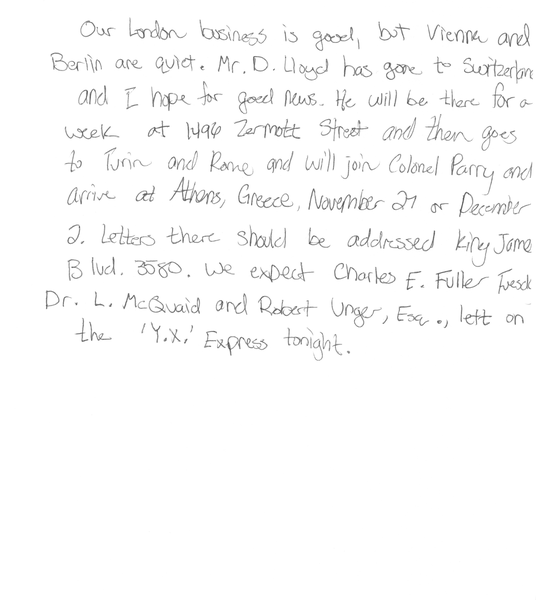 Our London business is good, but Vienna and
Berlin are quiet. Mr. D. Lloyd has gone to Switzerland
and I hope for good news. He will be there for a
week at 1496 Zermott Street and then goes
to Turin and Rome and will join Colonel Parry and
arrive at Athens, Greece, November 27 or December
2. Letters there should be addressed King Jame
Blvd. 3580. We expect Charles E. Fuller Tuesd
Dr. L. McQuaid and Robert Unger, Esq., left on
the 'Y.X.' Express tonight.